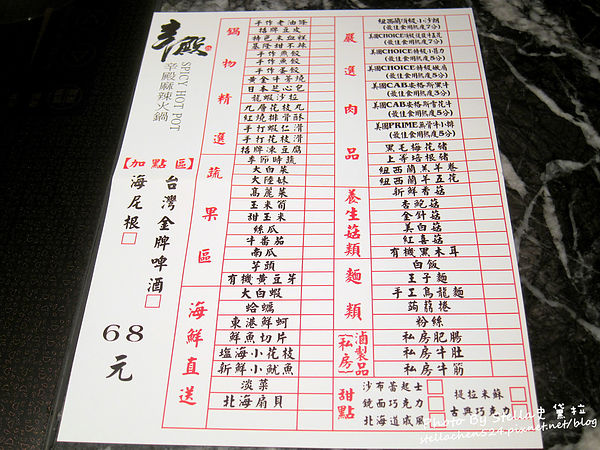 辛殿
SPICY HOT POT
辛殿麻辣火鍋
【加點區】
台灣金牌啤酒
海尼根
68元
鍋物精選
手作老油條
招牌豆皮
特色米血糕
基隆甜不辣
手作燕餃
手作魚餃
手作蛋餃
黃金牛蒡燒
日本芝心包
龍蝦沙拉
九層花枝丸
紅燒排骨酥
手打蝦仁滑
手打花枝滑
招牌凍豆腐
蔬果區
季節時蔬
大白菜
大陸妹
高麗菜
玉米筍
甜玉米
絲瓜
牛番茄
南瓜
芋頭
有機黃豆芽
海鮮直送
大白蝦
蛤蠣
東港鮮蚵
鮮魚切片
塩海小花枝
新鮮小魷魚
淡菜
北海扇貝
嚴選肉品
(最佳食用熟度7分)
(最佳食用熟度5分)
(最佳食用熟度5分)
美國CHOICE特級板肩
(最佳食用熟度5分)
美國CAB安格斯黑牛
(最佳食用熟度5分)
美國CAB安格斯雪花牛
(最佳食用熟度5分)
美國PRIME無骨牛小排
(最佳食用熟度5分)
黑毛梅花豬
上等培根豬
紐西蘭羊卷
紐西蘭羊五花
養生菇類
新鮮香菇
杏鮑菇
金針菇
美白菇
紅喜菇
有機黑木耳
麵類
白飯
王子麵
手工烏龍麵
蒟蒻捲
粉絲
滷製品
(私房)
私房肥腸
私房牛肚
私房牛筋
甜點
沙布蕾起士
提拉米蘇
鏡面巧克力
古典巧克力
北海道戚風
Photo by Stella史黛拉
stellachen524.pixnet.net/blog